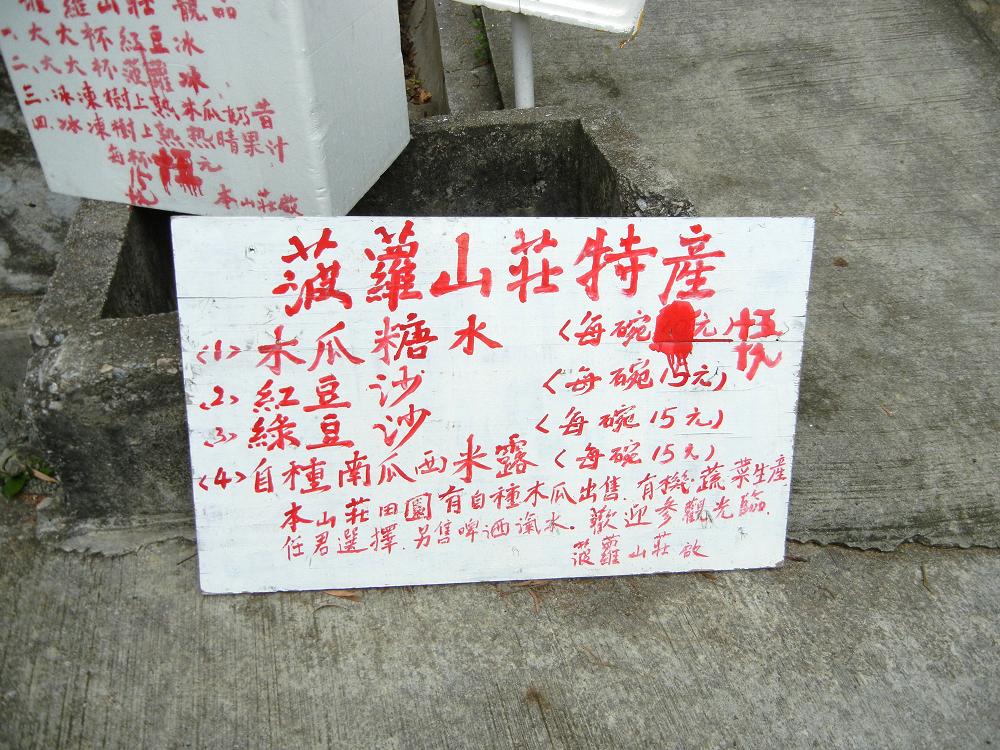 菠蘿山莊 靚品
一、大大杯紅豆冰
二、大大杯菠蘿冰
三、冰凍樹上熟木瓜奶昔
四、冰凍樹上熟熱暗果汁
每杯伍元
15
本山莊啟
菠蘿山莊特產
<1> 木瓜糖水 <每碗 元> 伍
<2> 紅豆沙 <每碗15元>
<3> 綠豆沙 <每碗15元>
<4> 自種南瓜西米露 <每碗15元>
本山莊田園有自種木瓜出售.有機蔬菜生產
任君選擇.另售啤酒汽水.歡迎參觀光臨.
菠蘿山莊啟